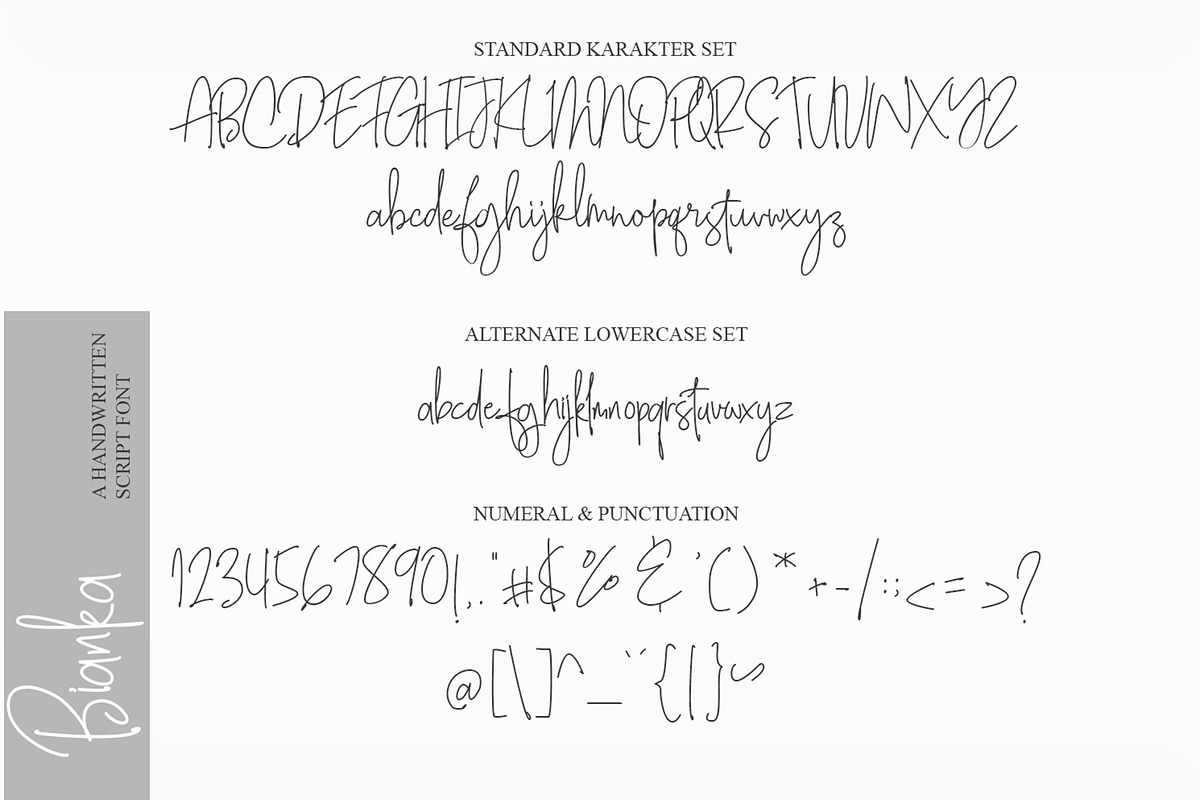 STANDARD KARAKTER SET
ABCDEFGHIJKLMNOPQRSTUVWXYZ
abcdefghijklmnopqrstuvwxyz
ALTERNATE LOWERCASE SET
abcdefghijklmnopqrstuvwxyz
NUMERAL & PUNCTUATION
1234567890!,."#$%&'()*+-/:;<=>?
@[\]^_``{|}~
A HANDWRITTEN
SCRIPT FONT
Bianka